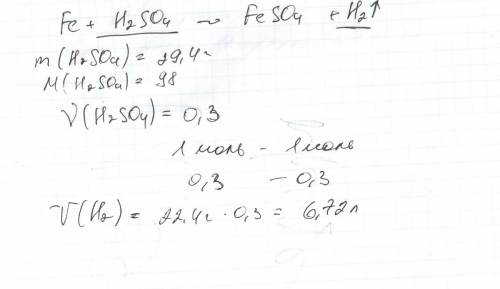 Fe + H₂SO₄ ~ FeSO₄ + H₂↑
m(H₂SO₄) = 29,4г
M(H₂SO₄) = 98
ν(H₂SO₄) = 0,3
1 моль - 1 моль
0,3 - 0,3
V(H₂) = 22,4г · 0,3 = 6,72л